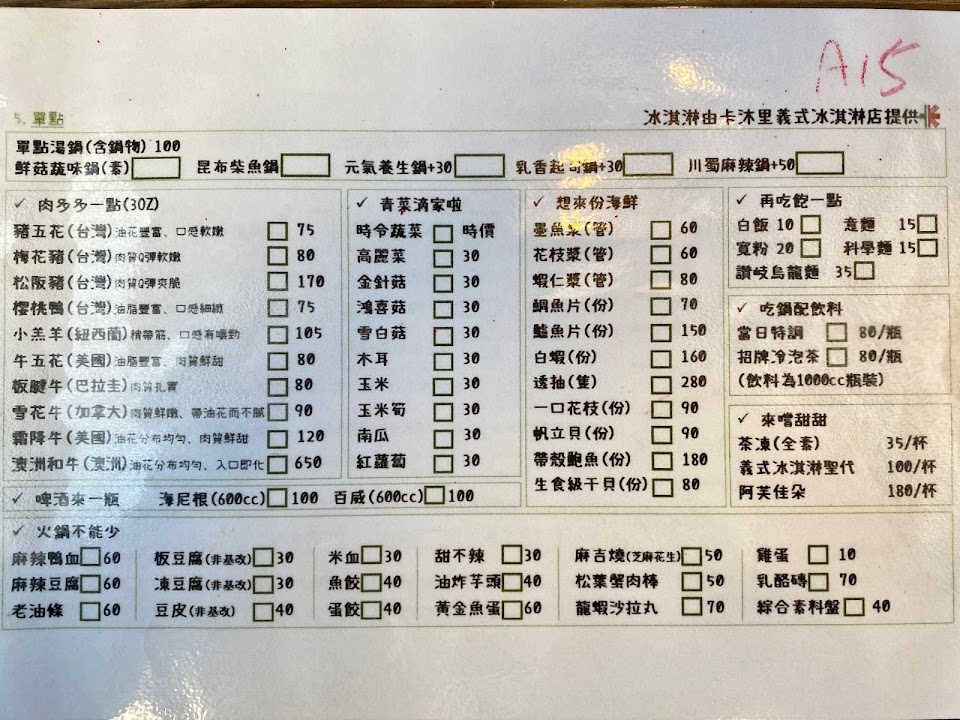 A15
5. 單點
冰淇淋由卡沐里義式冰淇淋店提供
單點湯鍋(含鍋物) 100
鮮菇蔬味鍋(素) 昆布柴魚鍋 元氣養生鍋+30 乳香起司鍋+30 川蜀麻辣鍋+50
✓ 肉多多一點(3OZ)
豬五花(台灣)油花豐富、口感軟嫩 75
梅花豬(台灣)肉質Q彈軟嫩 80
松阪豬(台灣)肉質Q彈爽脆 170
櫻桃鴨(台灣)油脂豐富、口感細緻 75
小羔羊(紐西蘭)稍帶筋、口感有嚼勁 105
牛五花(美國)油脂豐富、肉質鮮甜 80
板腱牛(巴拉圭)肉質扎實 80
雪花牛(加拿大)肉質鮮嫩、帶油花而不膩 90
霜降牛(美國)油花分布均勻、肉質鮮甜 120
澳洲和牛(澳洲)油花分布均勻、入口即化 650
✓ 青菜滴家啦
時令蔬菜 時價
高麗菜 30
金針菇 30
鴻喜菇 30
雪白菇 30
木耳 30
玉米 30
玉米筍 30
南瓜 30
紅蘿蔔 30
✓ 想來份海鮮
墨魚漿(管) 60
花枝漿(管) 60
蝦仁漿(管) 80
鯛魚片(份) 70
鱸魚片(份) 150
白蝦(份) 160
透抽(隻) 280
一口花枝(份) 90
帆立貝(份) 90
帶殼鮑魚(份) 180
生食級干貝(份) 80
✓ 再吃飽一點
白飯 10 意麵 15
寬粉 20 科學麵 15
讚岐烏龍麵 35
✓ 吃鍋配飲料
當日特調 80/瓶
招牌冷泡茶 80/瓶
(飲料為1000cc瓶裝)
✓ 來嚐甜甜
茶凍(全素) 35/杯
義式冰淇淋聖代 100/杯
阿芙佳朵 180/杯
✓ 啤酒來一瓶 海尼根(600cc) 100 百威(600cc) 100
✓ 火鍋不能少
麻辣鴨血 60 板豆腐(非基改) 30 米血 30 甜不辣 30 麻吉燒(芝麻花生) 50 雞蛋 10
麻辣豆腐 60 凍豆腐(非基改) 30 魚餃 40 油炸芋頭 40 松葉蟹肉棒 50 乳酪磚 70
老油條 60 豆皮(非基改) 40 蛋餃 40 黃金魚蛋 60 龍蝦沙拉丸 70 綜合素料盤 40